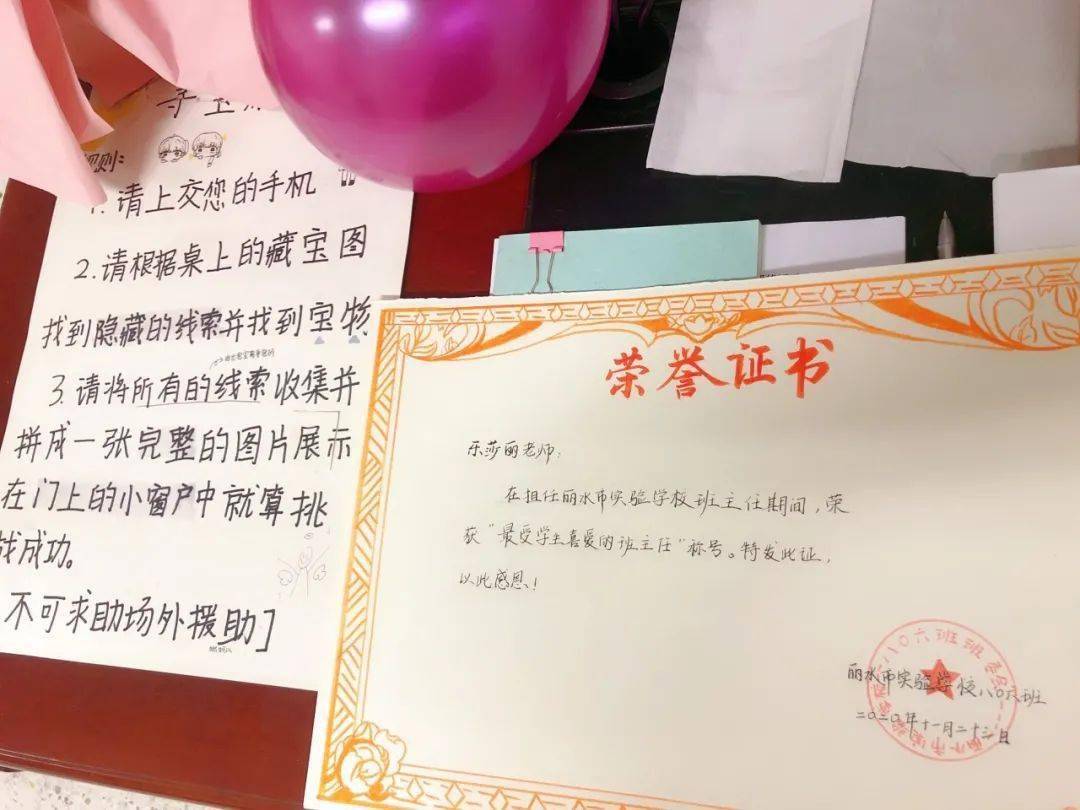 寻宝
规则:
1. 请上交您的手机
2. 请根据桌上的藏宝图
找到隐藏的线索并找到宝物
3. 请将所有的线索收集并
拼成一张完整的图片展示
在门上的小窗户中就算挑
战成功。
不可求助场外援助]
荣誉证书
乐莎丽老师:
在担任丽水市实验学校班主任期间,荣
获“最受学生喜爱的班主任”称号。特发此证,
以此感恩!
丽水市实验学校八〇六班
二〇二〇年十一月二十三日
八〇六班班